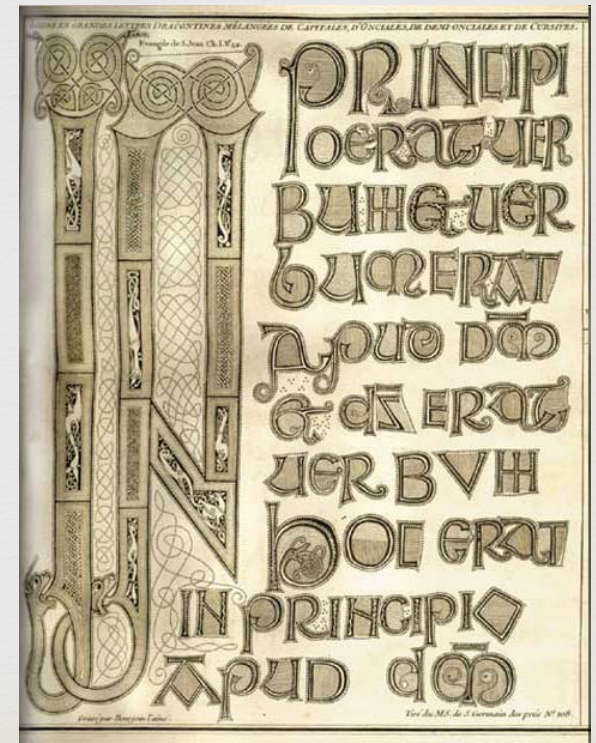 EN GRANDES LETTRES DRACONTINES MÉLANGÉES DE CAPITALES, D'ONCIALES, DE DEMI-ONCIALES ET DE CURSIVES.
Evangile de S. Jean Ch. I.
IN
PRINCIPI
O ERAT UER
BUM & UER
BUM ERAT
APUD DM̄
& DS ERAT
UERBVM
hOC ERAT
IN PRINCIPIO
APUD DM̄
Gravé par l'aîné.
Tiré du M.S. de S. Germain des prés N.º 108.